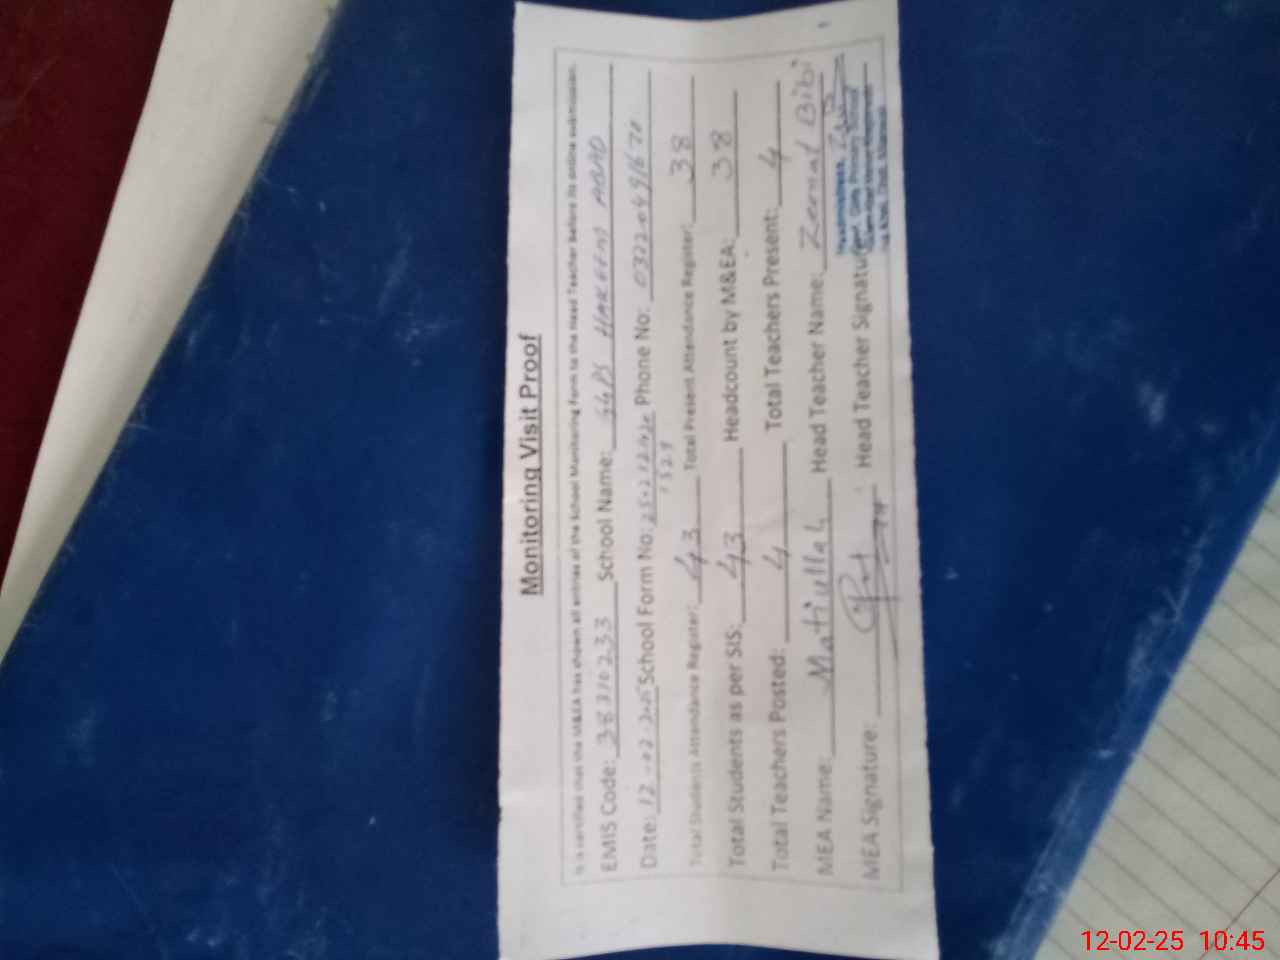 Monitoring Visit Proof
It is certified that the M&EA has shown all entries of the School Monitoring Form to the Head Teacher before its online submission.
EMIS Code: 38310233 School Name: GGPS HAKEEM ABAD
Date: 12-02-2025 School Form No: Phone No:
Total Students Attendance Register: 43 Total Present Attendance Register: 38
Total Students as per SIS: 43 Headcount by M&EA: 38
Total Teachers Posted: 4 Total Teachers Present: 4
MEA Name: Matiullah Head Teacher Name: Zeenat Bibi
MEA Signature: Head Teacher Signature
Headmistress
Govt. Girls Primary School
12-02-25 10:45